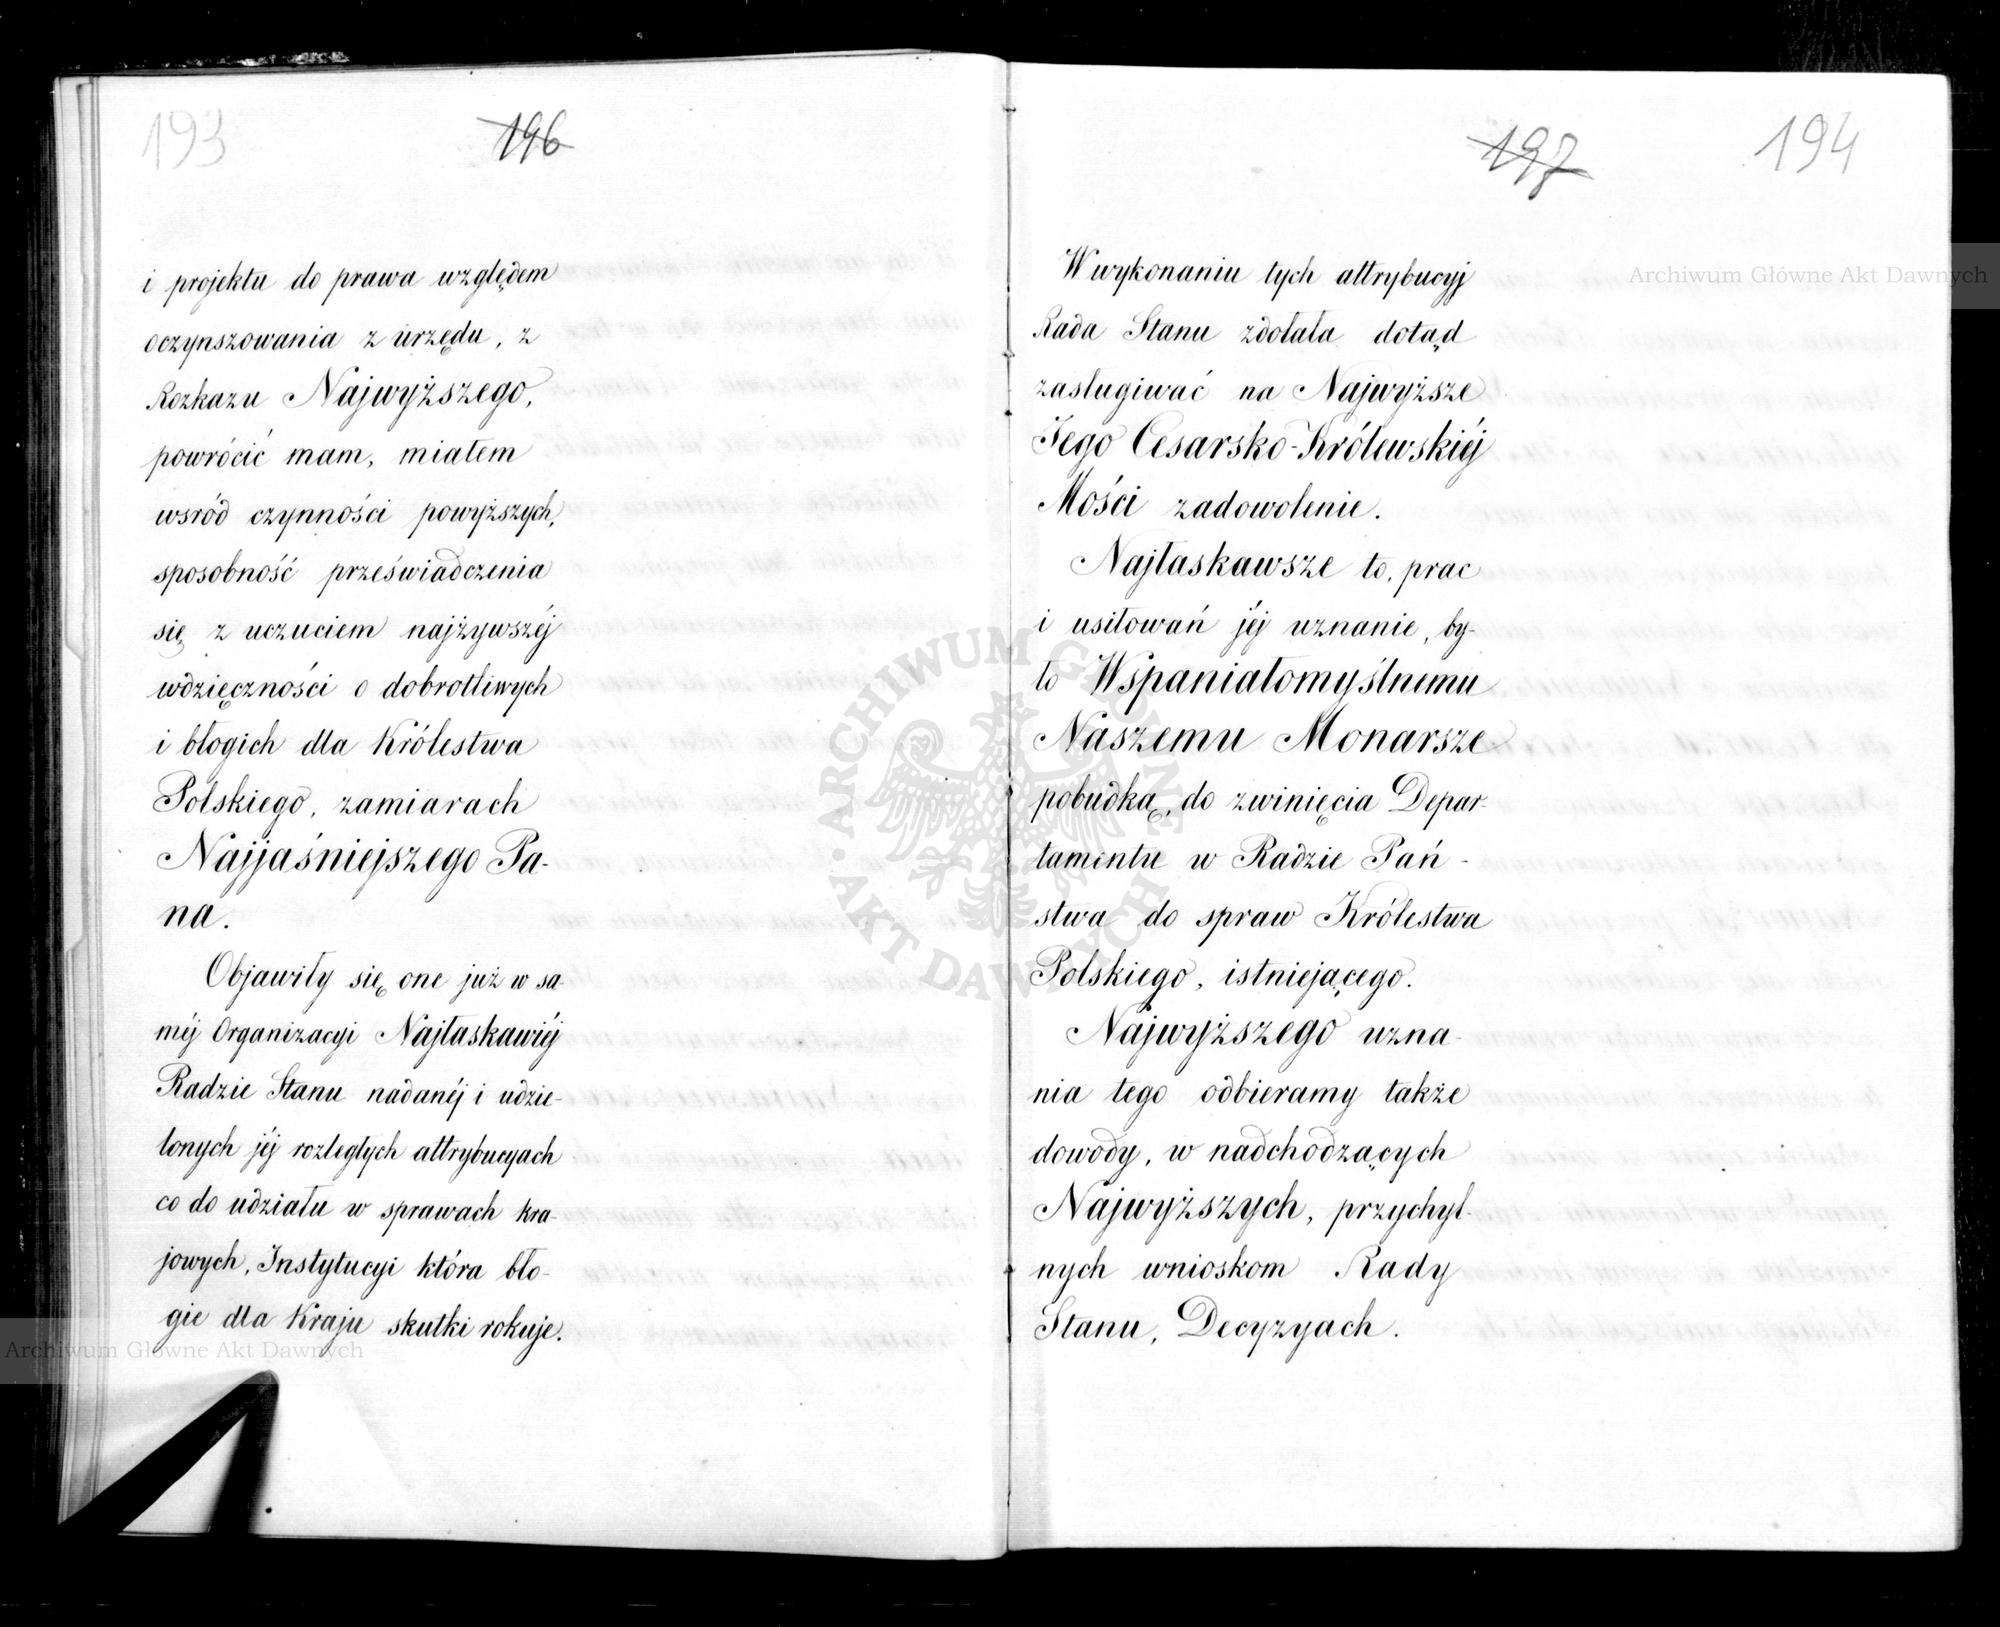 193
196
i projektu do prawa względem
oczynszowania z urzędu, z
Rozkazu Najwyższego,
powrócić mam, miałem
wsród czynności powyższych,
sposobność przeświadczenia
się z uczuciem najżywszéj
wdzięczności o dobrotliwych
i błogich dla Królestwa
Polskiego, zamiarach
Najjaśniejszego Pa-
na.
Objawiły się one już w sa-
méj Organizacyi Najłaskawiéj
Radzie Stanu nadanéj i udzie-
lonych jéj rozległych attrybucyach
co do udziału w sprawach kra-
jowych, Instytucyi która bło-
gie dla Kraju skutki rokuje.
197
194
W wykonaniu tych attrybucyj
Rada Stanu zdołała dotąd
zasługiwać na Najwyższe
Jego Cesarsko-Królewskiéj
Mości zadowolenie.
Najłaskawsze to, prac
i usiłowań jéj uznanie, by-
ło Wspaniałomyślnemu
Naszemu Monarsze
pobudką, do zwinięcia Depar-
tamentu w Radzie Pań-
stwa do spraw Królestwa
Polskiego, istniejącego.
Najwyższego uzna-
nia tego odbieramy także
dowody, w nadchodzących
Najwyższych, przychyl-
nych wnioskom Rady
Stanu, Decyzyach.
Archiwum Główne Akt Dawnych
Archiwum Główne Akt Dawnych
ARCHIWUM GŁÓWNE
AKT DAWNYCH